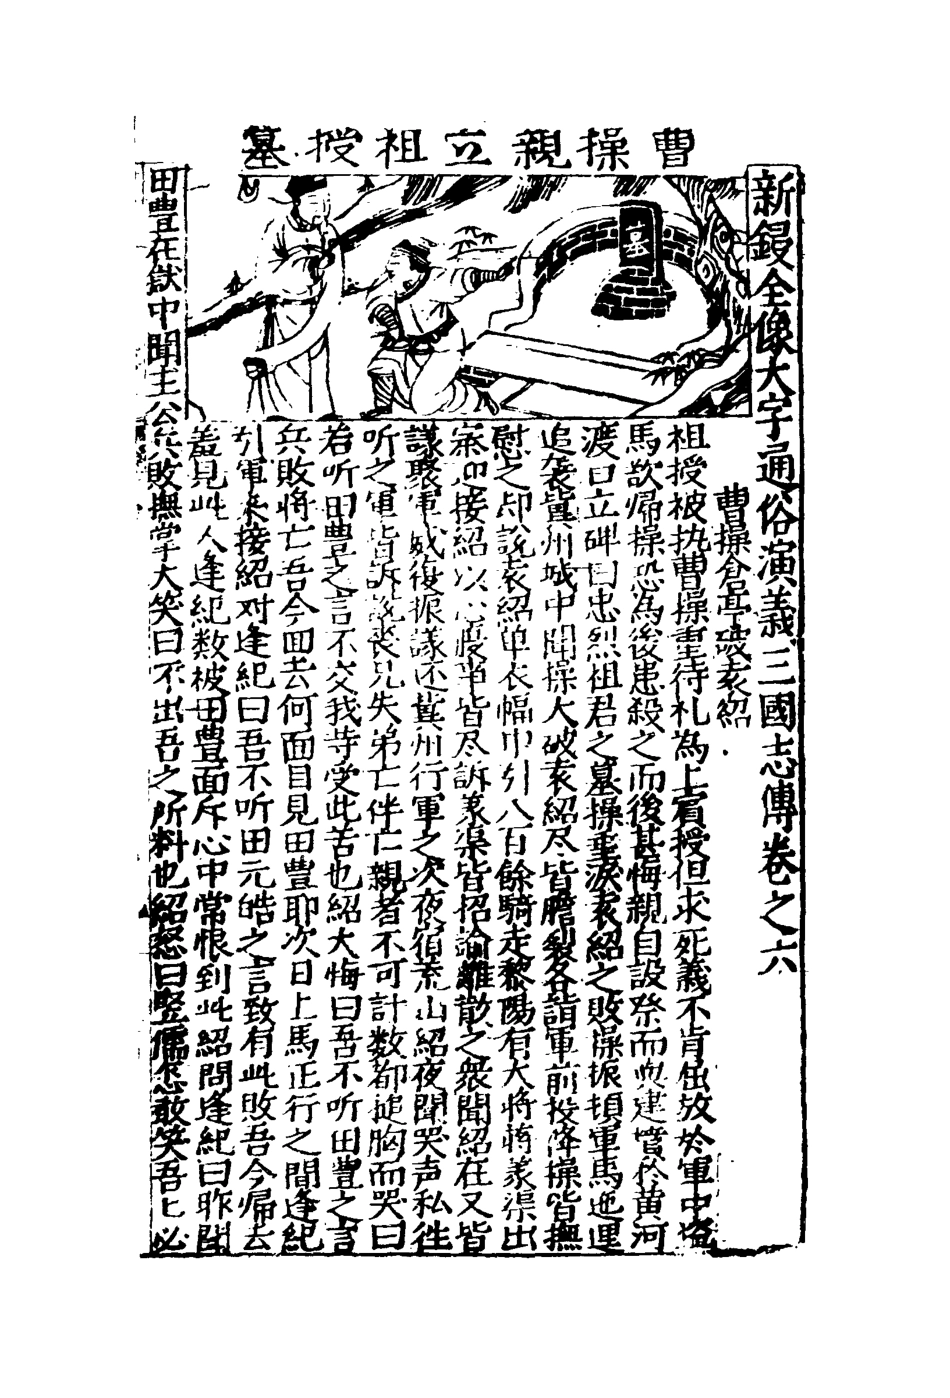 曹操親立祖授墓
墓
新鋟全像大字通俗演義三國志傳卷之六
曹操倉亭破袁紹
祖授被执曹操重待礼為上賓授但求死義不肯出放於軍中盗
馬欲帰操恐為後患殺之而後甚悔親自設祭而與建墳於黄河
渡口立碑曰忠烈祖君之墓操垂淚袁紹之敗操振頓軍馬迤運
追袭冀州城中聞操大破袁紹尽皆膽裂各詣軍前投降操皆撫
慰之却說袁紹单衣幅巾引八百餘騎走黎陽有大将蒋義渠出
寨迎接紹以心腹事皆尽訴義渠皆招諭離散之衆聞紹在又皆
議聚軍威復振議还冀州行軍之次夜宿荒山紹夜聞哭声私徃
听之軍皆訴說丧兄失弟亡伴亡親者不可計数都搥胸而哭曰
若听田豊之言不交我等受此苦也紹大悔曰吾不听田豊之言
兵敗将亡吾今囬去何面目見田豊耶次日上馬正行之間逢紀
引軍来接紹对逢紀曰吾不听田元皓之言致有此敗吾今帰去
羞見此人逢紀数被田豊面斥心中常恨到此紹問逢紀曰昨聞
田豊在獄中聞主公兵敗撫掌大笑曰不出吾之所料也紹怒曰竪儒怎敢笑吾匕必